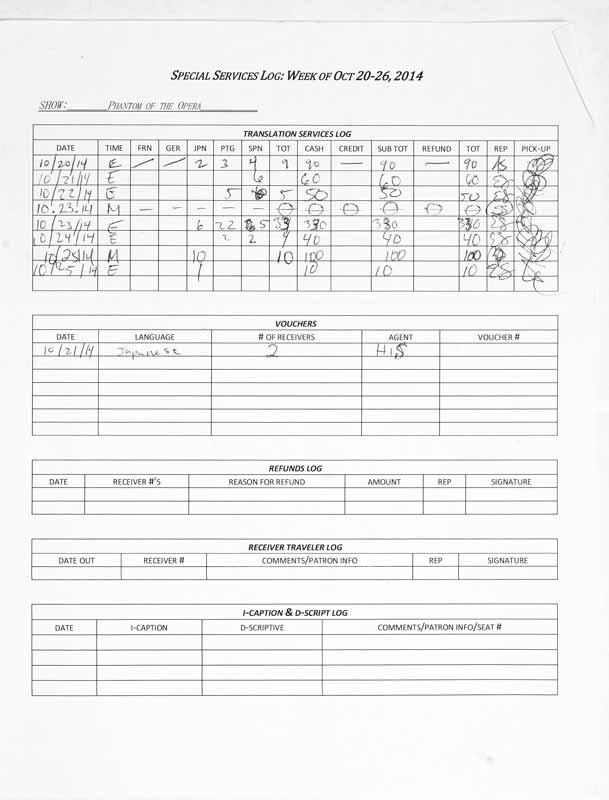 SPECIAL SERVICES LOG: WEEK OF OCT 20-26, 2014
SHOW: PHANTOM OF THE OPERA
TRANSLATION SERVICES LOG
DATE TIME FRN GER JPN PTG SPN TOT CASH CREDIT SUB TOT REFUND TOT REP PICK-UP
10/20/14 E — — 2 3 4 9 90 — 90 — 90
10/21/14 E 6 60 60 60
10/22/14 E 5 5 50 50 50
10.23.14 M — — — — — 0 0 0 0 0 0
10/23/14 E 6 22 5 33 330 330 330
10/24/14 E 2 2 4 40 40 40
10/25/14 M 10 10 100 100 100
10/25/14 E 1 10 10 10
VOUCHERS
DATE LANGUAGE # OF RECEIVERS AGENT VOUCHER #
10/21/14 Japanese 2 HIS
REFUNDS LOG
DATE RECEIVER #'S REASON FOR REFUND AMOUNT REP SIGNATURE
RECEIVER TRAVELER LOG
DATE OUT RECEIVER # COMMENTS/PATRON INFO REP SIGNATURE
I-CAPTION & D-SCRIPT LOG
DATE I-CAPTION D-SCRIPTIVE COMMENTS/PATRON INFO/SEAT #